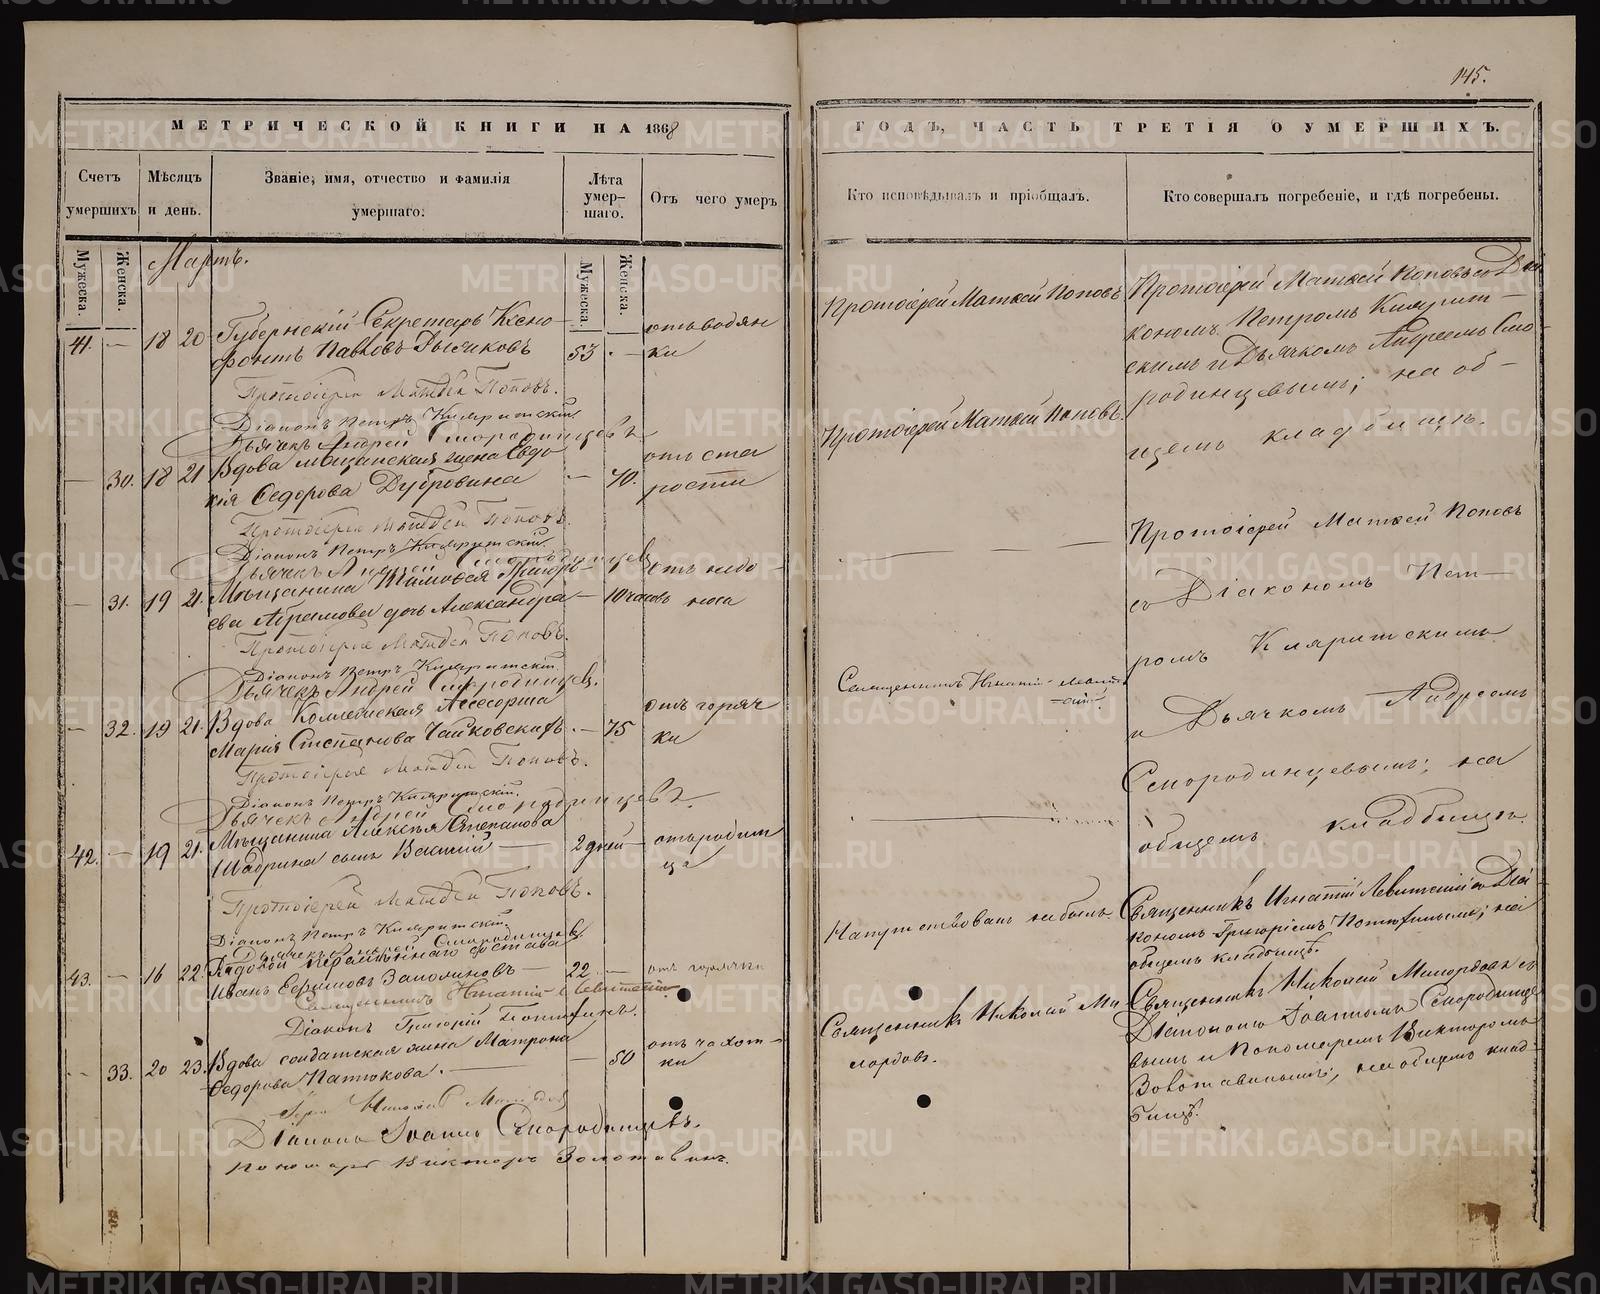 145.
МЕТРИЧЕСКОЙ КНИГИ НА 1868
ГОДЪ, ЧАСТЬ ТРЕТІЯ О УМЕРШИХЪ.
Счетъ умершихъ
Мѣсяцъ и день.
Званіе, имя, отчество и фамилія умершаго.
Лѣта умер-шаго.
Отъ чего умеръ
Кто исповѣдывалъ и пріобщалъ.
Кто совершалъ погребеніе, и гдѣ погребены.
Мужеска.
Женска.
Мартъ.
Мужеска.
Женска.
41. — 18 20 Губернскій Секретарь Ксено-
фонтъ Павловъ 53. — отъ водян
ки
Протоіерей Матѳей Поповъ.
Діаконъ Петръ
Дьячекъ Андрей Смородинцевъ
— 30. 18 21 Вдова мѣщанская жена Евдо
кія Ѳедорова Дубровина — 70. отъ ста
рости
Протоіерей Матѳей Поповъ.
Діаконъ Петръ
Дьячекъ Андрей Смородинцевъ
— 31. 19 21. Мѣщанина Тимоѳея Григорь-
ева Абрамова дочь Александра — 10 часовъ отъ недо-
носа
Протоіерей Матѳей Поповъ.
Діаконъ Петръ
Дьячекъ Андрей Смородинцевъ.
— 32. 19 21. Вдова Коллежская Ассесорша
Марія Степанова Чайковская. — 75 отъ горяч
ки
Протоіерей Матѳей Поповъ.
Діаконъ Петръ
Дьячекъ Андрей Смородинцевъ.
42. — 19 21. Мѣщанина Алексѣя Степанова
Шадрина сынъ Василій — 2 дней — отъ родим
ца
Протоіерей Матѳей Поповъ.
Діаконъ Петръ
Дьячекъ Андрей Смородинцевъ.
43. — 16 22. Рядовой состава
Иванъ Ефимовъ — 22 — отъ горячки
Священникъ Игнатій Левитскій
Діаконъ Григорій
— 33. 20 23. Вдова солдатская жена Матрона
Ѳедорова Патюкова. — 50 отъ чахот-
ки
Николай
Діаконъ Іоаннъ Смородинцевъ.
Пономарь Викторъ Золотавинъ.
Протоіерей Матѳей Поповъ
Протоіерей Матѳей Поповъ.
Священникъ Игнатій
Напутствованъ не былъ.
Священникъ Николай Ми
лордовъ.
Протоіерей Матѳей Поповъ съ Діа
кономъ Петромъ
скимъ и Дьячкомъ Андреемъ Смо-
родинцевымъ; на об-
щемъ кладбищѣ.
Протоіерей Матѳей Поповъ
съ Діакономъ Пет-
ромъ
и Дьячкомъ Андреемъ
Смородинцевымъ; на
общемъ кладбищѣ.
Священникъ Игнатій Левитскій съ Діа
кономъ Григоріемъ на
общемъ кладбищѣ.
Священникъ Николай Милордовъ съ
Діакономъ Іоанномъ Смородинце
вымъ и Пономаремъ Викторомъ
Золотавинымъ; на общемъ клад
бищѣ.
METRIKI.GASO-URAL.RU